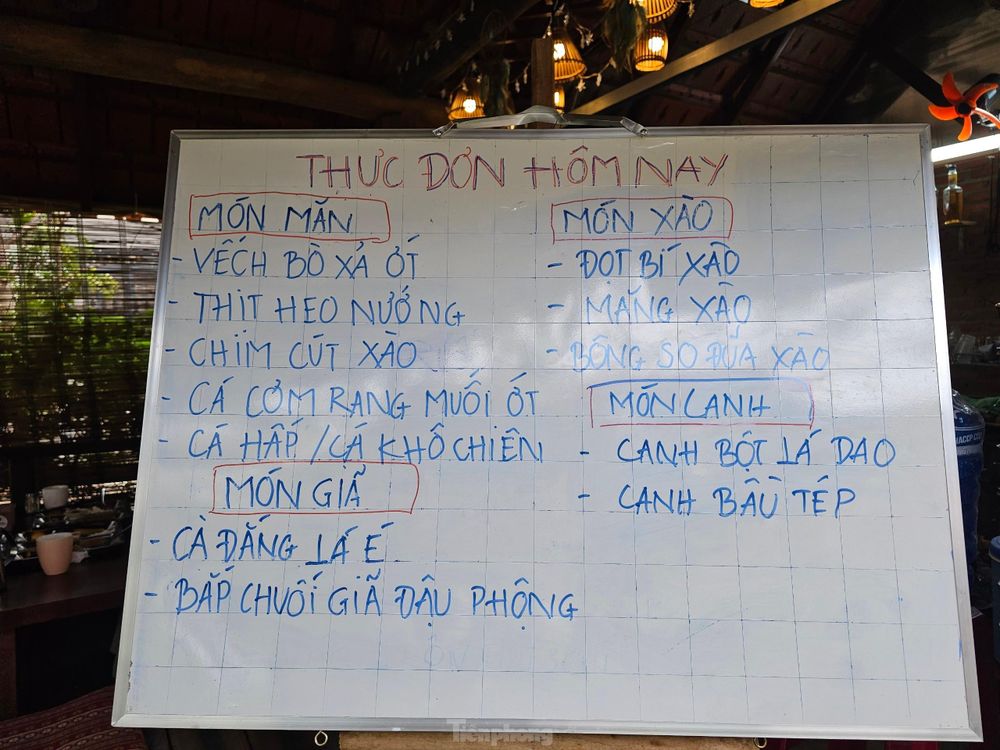 THỰC ĐƠN HÔM NAY
MÓN MẶN
- VẾCH BÒ XẢ ỚT
- THỊT HEO NƯỚNG
- CHIM CÚT XÀO
- CÁ CƠM RANG MUỐI ỚT
- CÁ HẤP / CÁ KHÔ CHIÊN
MÓN GIÃ
- CÀ ĐẮNG LÁ É
- BẮP CHUỐI GIÃ ĐẬU PHỘNG
MÓN XÀO
- ĐỌT BÍ XÀO
- MĂNG XÀO
- BÔNG SO ĐŨA XÀO
MÓN CANH
- CANH BỘT LÁ DAO
- CANH BẦU TÉP
HACCP
Tiênphong